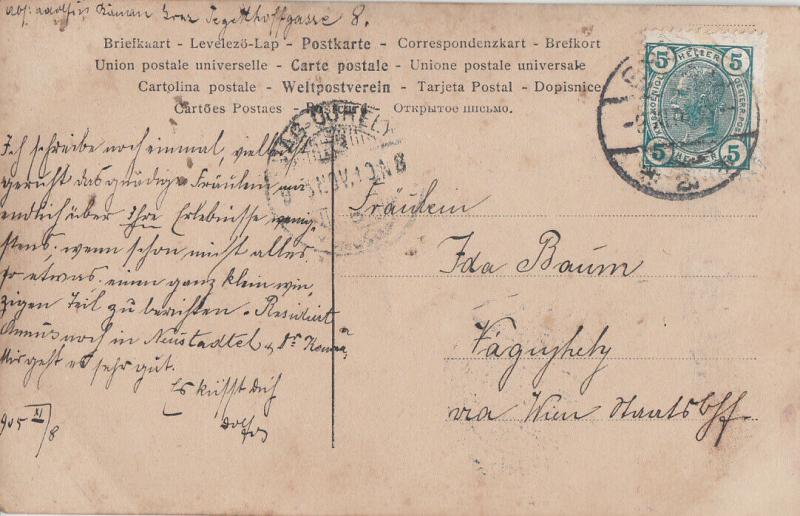 Abs: Adolfus Graz Tegetthoffgasse 8.
Briefkaart - Levelezö-Lap - Postkarte - Correspondenzkart - Brefkort
Union postale universelle - Carte postale - Unione postale universale
Cartolina postale - Weltpostverein - Tarjeta Postal - Dopisnice
Cartões Postaes - Postcart - Открытое письмо.
5 HELLER 5
5 HELLER 5
Ich schreibe noch einmal, vielleicht
geruht das gnädige Fräulein mir
endlich über Ihre Erlebnisse wenig-
stens, wenn schon nicht alles,
so etwas einen ganz klein win-
zigen Teil zu berichten. Residiert
noch in Neustadtel & Dr
Mir geht es sehr gut.
Es küsst dich
Dolfos
905 XI/8
Fräulein
Ida Baum
Vágujhely
via Wien Staatsbhf.